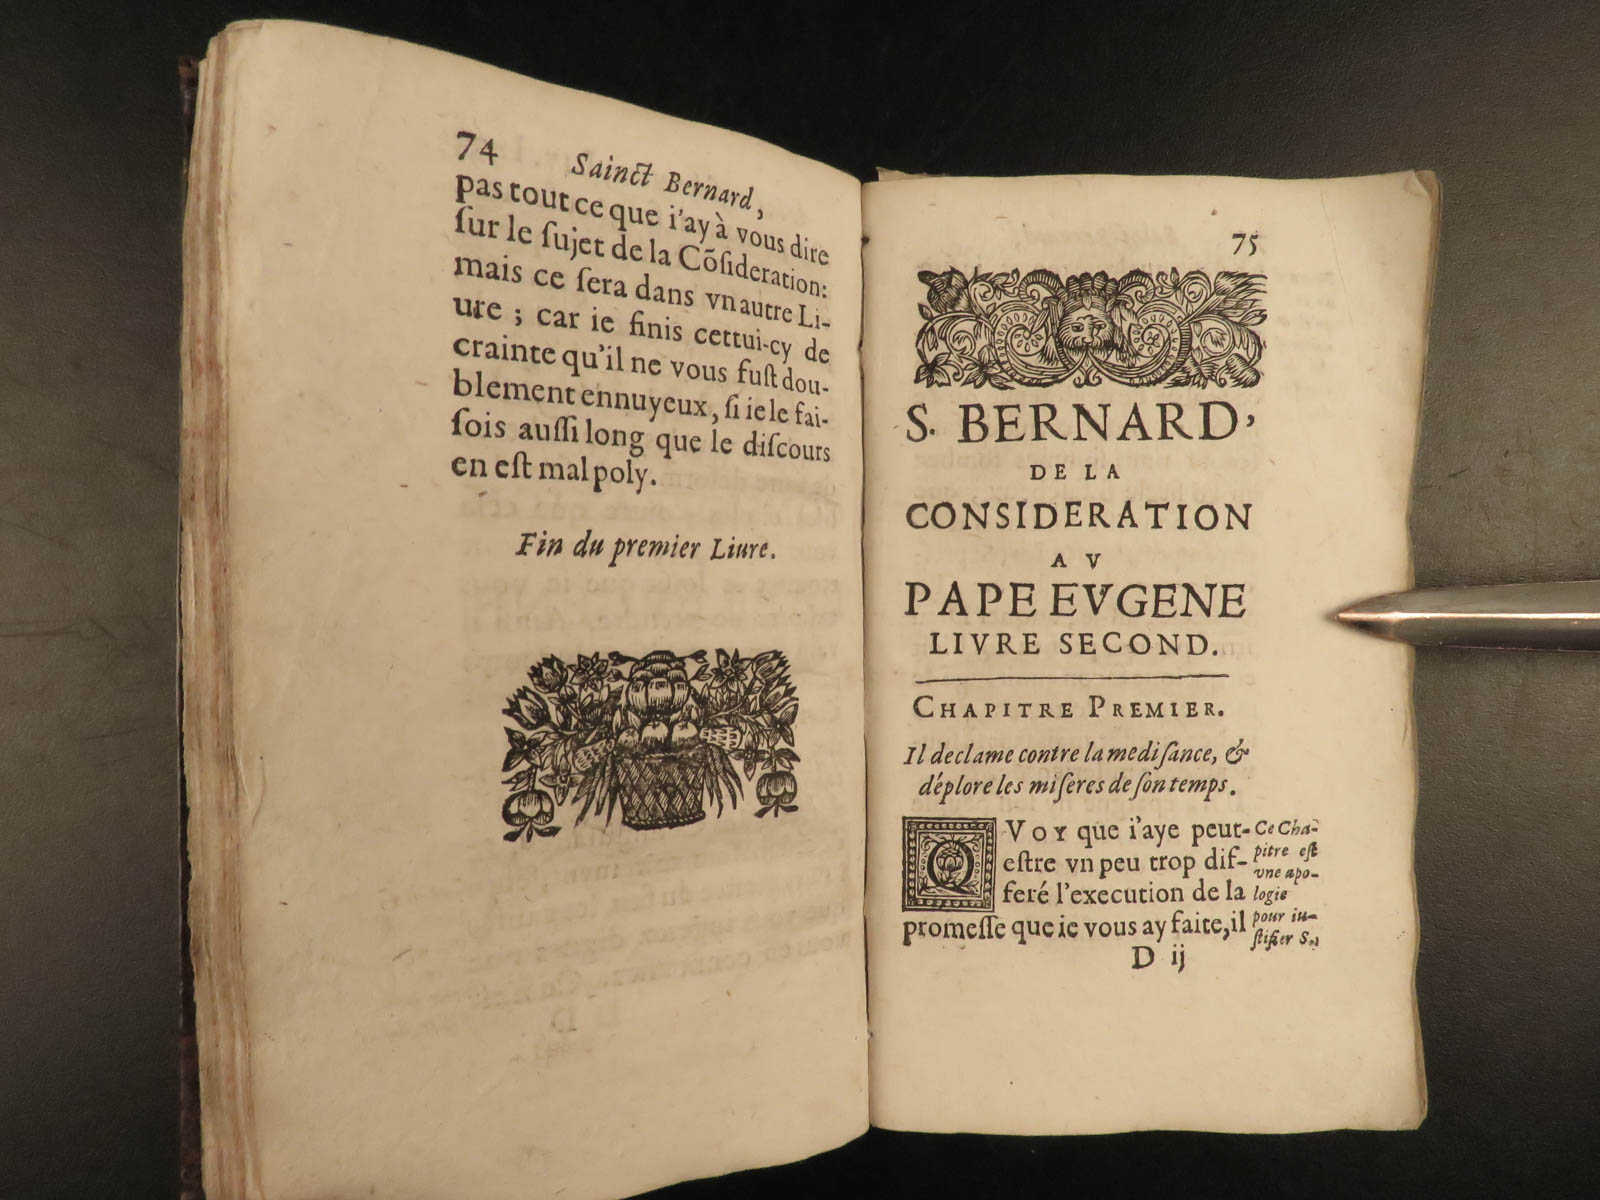 74
Sainct Bernard,
pas tout ce que i'ay à vous dire
ſur le ſujet de la Cõſideration:
mais ce ſera dans vn autre Li-
ure ; car ie finis cettui-cy de
crainte qu'il ne vous fuſt dou-
blement ennuyeux, ſi ie le fai-
ſois auſſi long que le diſcours
en eſt mal poly.
Fin du premier Liure.
75
S. BERNARD,
DE LA
CONSIDERATION
AV
PAPE EVGENE
LIVRE SECOND.
CHAPITRE PREMIER.
Il declame contre la mediſance, &
déplore les miſeres de ſon temps.
QVOY que i'aye peut-
eſtre vn peu trop dif-
feré l'execution de la
promeſſe que ie vous ay faite, il
Ce Cha-
pitre eſt
vne apo-
logie
pour iu-
ſtifier S.
D ij